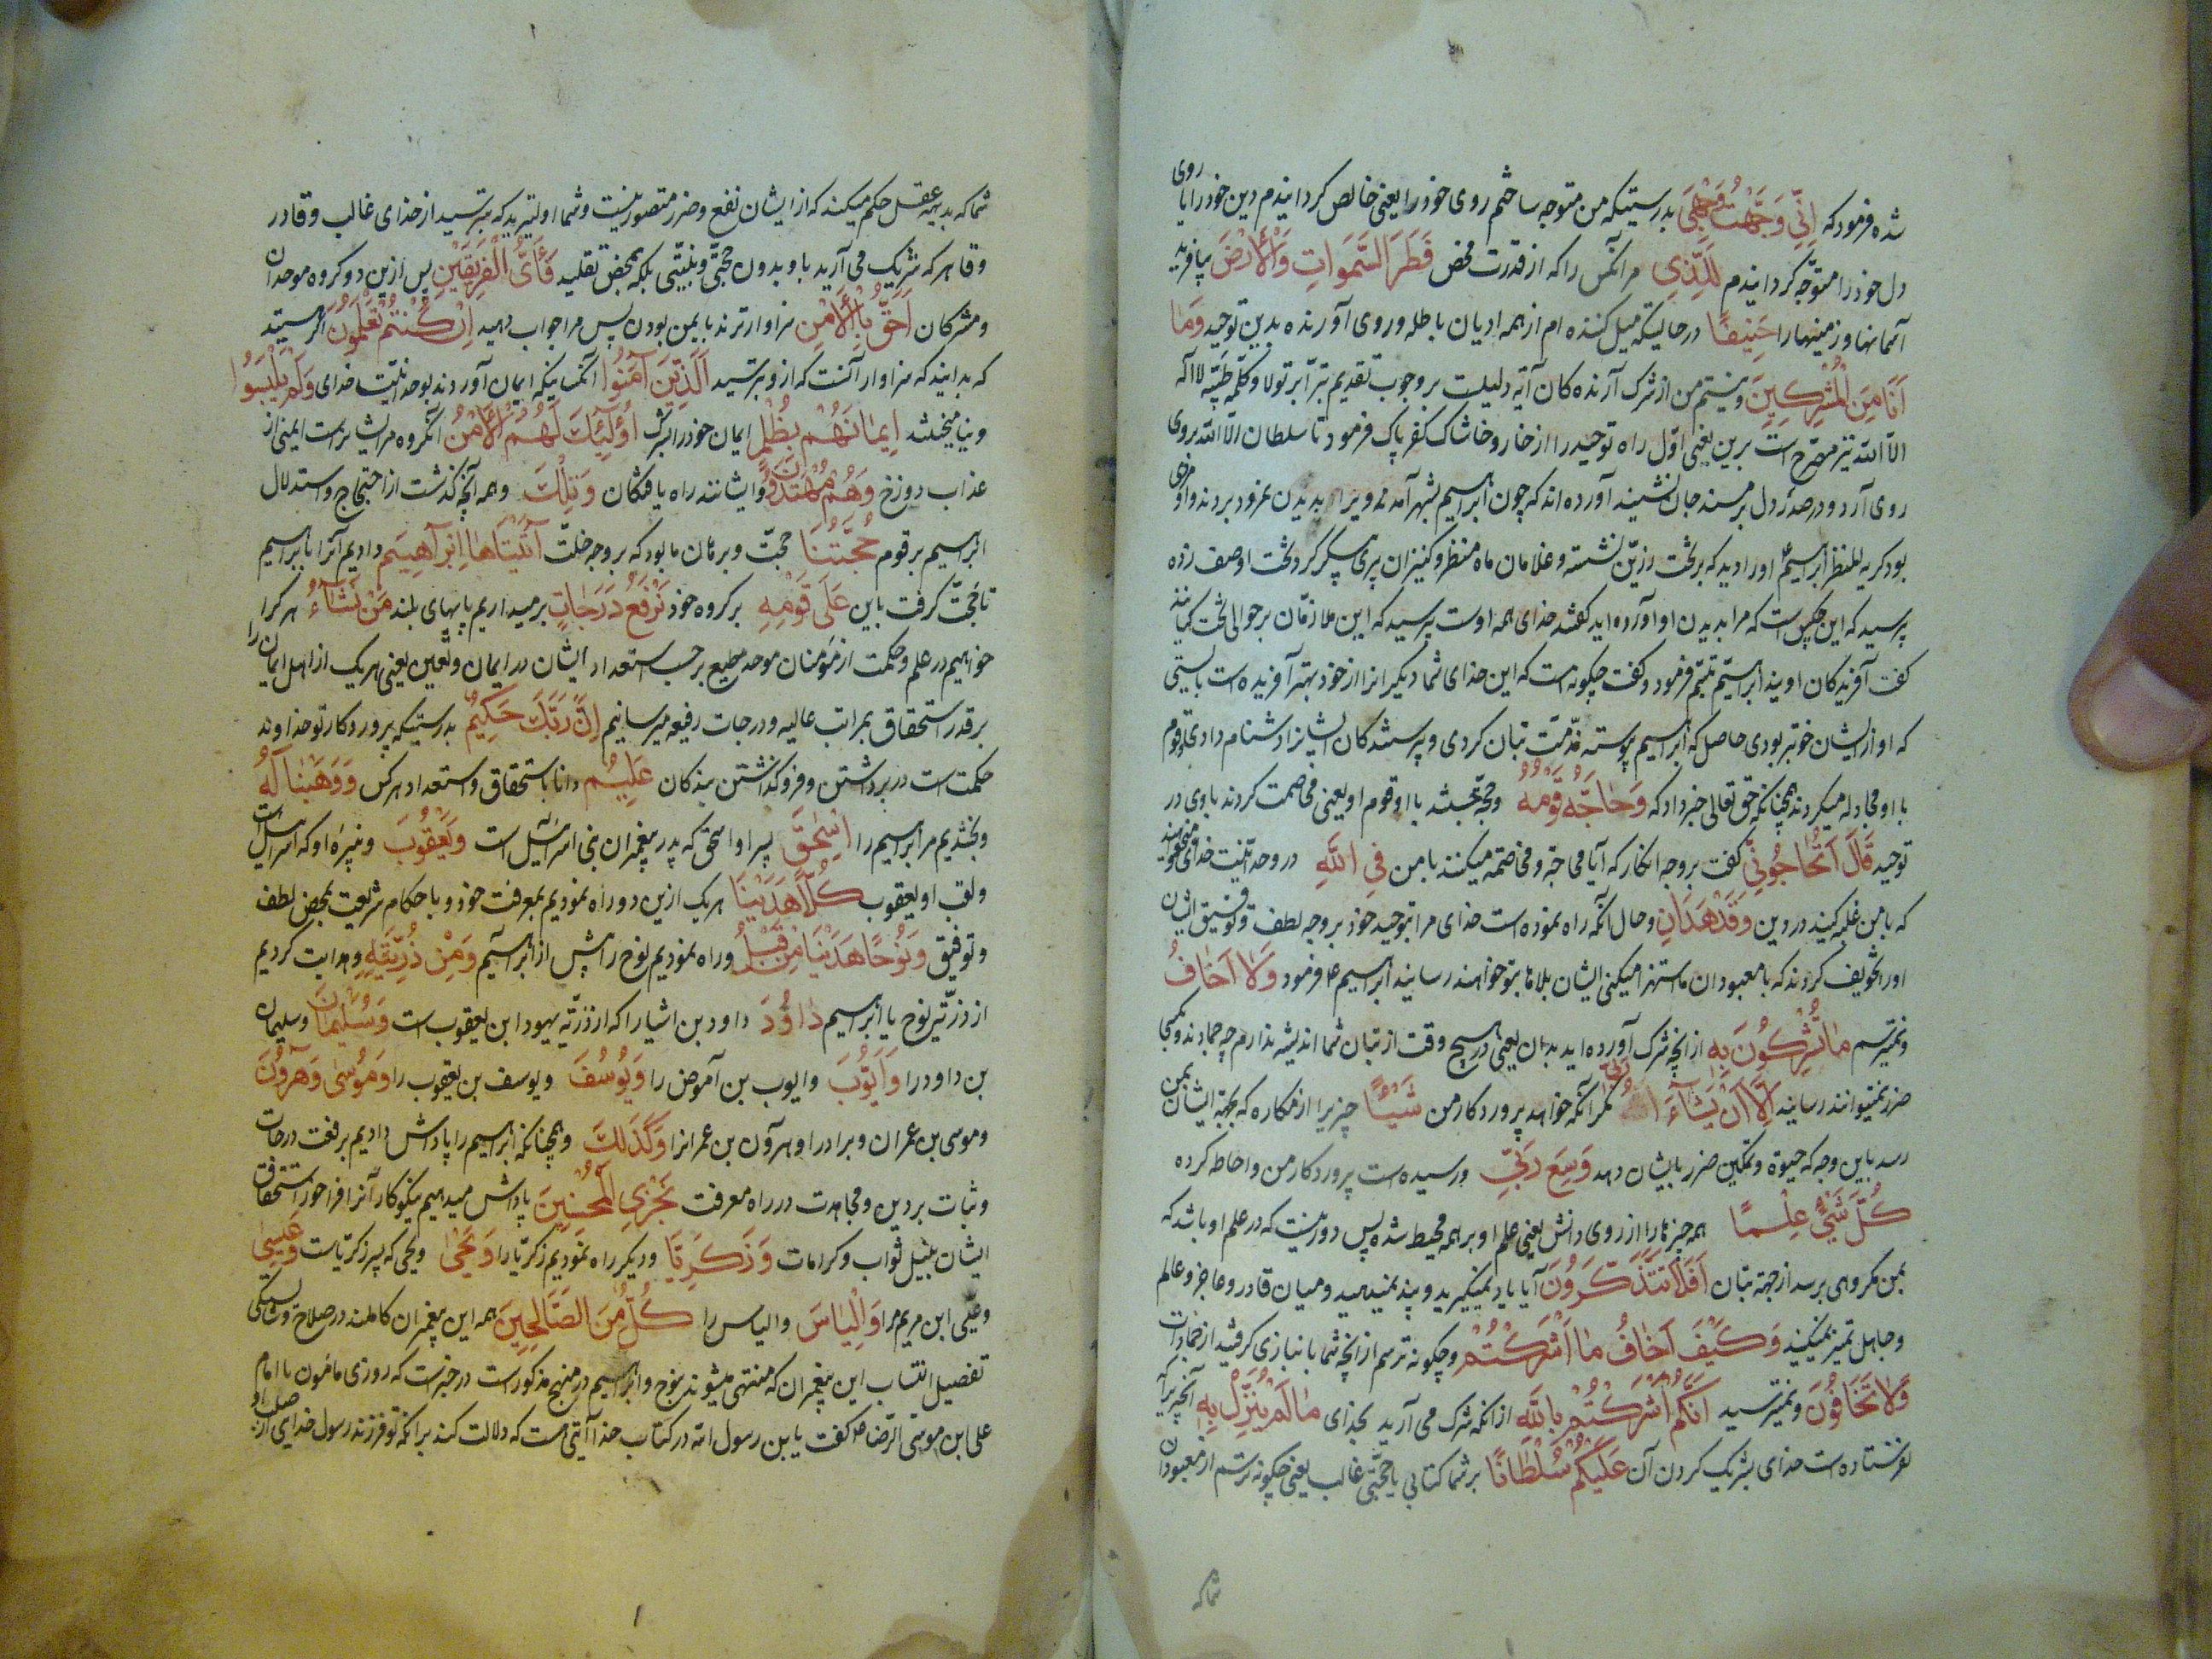 شده فرمود که اِنِّی وَجَّهْتُ وَجْهِیَ بدرستیکه من متوجه ساختم روی خود را یعنی خالص گردانیدم دین خود را یا روی
دل خود را متوجّه گردانیدم لِلَّذِی مر آنکس را که از قدرت محض فَطَرَ السَّمَواتِ وَالْأَرْضَ بیافرید
آسمانها و زمینها را حَنِیفًا در حالیتکه میل کننده ام از همه ادیان باطله و روی آورنده بدین توحید وَمَا
اَنَا مِنَ الْمُشْرِکِینَ و نیستم من از شرک آرنده کان آیه دلیلست بر وجوب تقدیم تبرّا بر تولا و کلمه طیّبه لا اله
الّا الله نیز مصرّح است برین یعنی اوّل راه توحید را از خار و خاشاک کفر پاک فرمود تا سلطان الّا الله بروی
روی آرد و در صدر دل بر مسند جان نشیند آورده اند که چون ابراهیم بشهر آمد ویرا بدیدن نمرود بردند و او مردی
بود کریه المنظر ابراهیم او را دید که بر تخت زرین نشسته و غلامان ماه منظر و کنیزان پری پیکر گرد تخت او صف زده
پرسید که این چکس است که مرا بدیدن او آورده اید گفتند خدای همه اوست پرسید که این ملازمان بر حوالی تخت کیانند
گفت آفریدگان اویند ابراهیم تبسّم فرمود و گفت چگونه است که این خدای شما دیگرانرا از خود بهتر آفریده است بایستی
که او از ایشان خوبتر بودی حاصل که ابراهیم پیوسته مذمّت بتان کردی و پرستندگان ایشانرا دشنام دادی و قوم
با او مجادله میکردند همچنانکه حق تعالی خبر داد که وَحَاجَّهُ قَوْمُهُ و حجّه جستند با او قوم او یعنی مخاصمت کردند با وی در
توحید قَالَ اَتُحَاجُّونِّی گفت بر وجه انکار که آیا محاجّه و مخاصمه میکنند با من فِی اللَّهِ در وحدانیت خدای میخواهید
که با من غلبه کنید در دین وَقَدْ هَدَانِ و حال آنکه راه نموده است خدای مرا بتوحید خود بر وجه لطف و توفیق ایشان
او را تخویف کردند که با معبودان ما ستهزا میکنی ایشان بلاها بتو خواهند رسانید ابراهیم ع فرمود وَلَا اَخَافُ
و نمیترسم مَا تُشْرِکُونَ بِهِ از انچه شرک آورده اید بدان یعنی در هیچ وقت از بتان شما اندیشه ندارم چه جمادند و بکسی
ضرر نمیتوانند رسانید اِلَّا اَنْ یَشَآءَ رَبِّی مگر آنکه خواهد پروردکار من شَیْئًا چیزیرا از مکاره که بجهة ایشان بمن
رسد باین وجه که حیوة و تمکین ضرر بایشان دهد وَسِعَ رَبِّی و رسیده است پروردکار من و احاطه کرده
کُلَّ شَیْءٍ عِلْمًا همه چیزها را از روی دانش یعنی علم او بر همه محیط شده پس دور نیست که در علم او باشد که
بمن مکروهی برسد از جهة بتان اَفَلَا تَتَذَکَّرُونَ آیا یاد نمیگیرید و پند نمیدهید و میان قادر و عاجز و عالم
و جاهل تمیز نمیکنید وَکَیْفَ اَخَافُ مَا اَشْرَکْتُمْ و چگونه ترسم از انچه شما بانبازی گرفتید از جمادات
وَلَا تَخَافُونَ و نمیترسید اَنَّکُمْ اَشْرَکْتُمْ بِاللَّهِ از انکه شرک می آرید بخدای مَا لَمْ یُنَزِّلْ بِهِ انچیزیرا که
نفرستاده است خدای بشریک کردن آن عَلَیْکُمْ سُلْطَانًا بر شما کتابی یا حجّتی غالب یعنی چگونه ترسم از معبودان
شما که
شما که بدیهه عقل حکم میکند که از ایشان نفع و ضرر متصور نیست و شما اولیترید که بترسید از خدای غالب و قادر
و قاهر که شریک می آرید باو بدون حجتی و بینتی بلکه بمحض تقلید فَأَیُّ الْفَرِیقَیْنِ پس ازین دو گروه موحدان
و مشرکان اَحَقُّ بِالْأَمْنِ سزاوارترند بایمن بودن پس مرا جواب دهید اِنْ کُنْتُمْ تَعْلَمُونَ اگر هستید
که بدانید که سزاوار آنست که ازو بترسید اَلَّذِینَ آمَنُوا آنکسانیکه ایمان آوردند بوحدانیّت خدای وَلَمْ یَلْبِسُوا
و نیامیختند اِیمَانَهُمْ بِظُلْمٍ ایمان خود را بشرک اُولَئِکَ لَهُمُ الْأَمْنُ آنگروه مر ایشانراست ایمنی از
عذاب دوزخ وَهُمْ مُهْتَدُونَ و ایشانند راه یافتگان وَتِلْکَ و همه آنچه گذشت از احتجاج و استدلال
ابراهیم بر قوم حُجَّتُنَا حجّت و برهان ما بود که بر وجه خلّت آتَیْنَاهَا اِبْرَاهِیمَ دادیم آنرا بابراهیم
تا حجّت گرفت باین عَلَی قَوْمِهِ بر گروه خود نَرْفَعُ دَرَجَاتٍ برمیداریم پایهای بلند مَنْ نَشَآءُ هر کرا
خواهیم در علم و حکمت از مؤمنان موحد مطیع بر حسب استعداد ایشان در ایمان و یقین یعنی هر یک از اهل ایمان را
بر قدر استحقاق بمراتب عالیه و درجات رفیعه میرسانیم اِنَّ رَبَّکَ حَکِیمٌ بدرستیکه پروردکار تو خداوند
حکمتست در برداشتن و فرو گذاشتن بندکان عَلِیمٌ دانا باستحقاق و استعداد هر کس وَوَهَبْنَا لَهُ
و بخشدیم مر ابراهیم را اِسْحَقَ پسر او اسحق که پدر پیغمبران بنی اسرائیل است وَیَعْقُوبَ و نبیره او که اسرائیل است
و لقب او یعقوب کُلًّا هَدَیْنَا هر یک ازین دو راه نمودیم بمعرفت خود و باحکام شریعت بمحض لطف
و توفیق وَنُوحًا هَدَیْنَا مِنْ قَبْلُ و راه نمودیم نوح را پیش از ابراهیم وَمِنْ ذُرِّیَّتِهِ و هدایت کردیم
از ذرّیّه نوح یا ابراهیم دَاوُدَ داود بن ایشا را که از ذرّیّه یهودا بن یعقوب است وَسُلَیْمَانَ و سلیمان
بن داود را وَاَیُّوبَ و ایوب بن آموص را وَیُوسُفَ و یوسف بن یعقوب را وَمُوسَی وَهَرُونَ
و موسی بن عمران و برادر او هرون بن عمرانرا وَکَذَلِکَ و همچنانکه ابراهیم را پاداش دادیم برفعت درجات
و ثبات بر دین و مجاهدت در راه معرفت نَجْزِی الْمُحْسِنِینَ پاداش میدهیم نیکوکارانرا فراخور استحقاق
ایشان بنیل ثواب و کرامات وَزَکَرِیَّا و دیگر راه نمودیم زکریا را وَیَحْیَی و یحیی که پسر زکریاست وَعِیسَی
و عیسی ابن مریم را وَاِلْیَاسَ و الیاس را کُلٌّ مِنَ الصَّالِحِینَ همه این پیغمبران کاملند در صلاح و شایستکی
تفصیل انتساب این پیغمبران که منتهی میشوند بنوح و ابراهیم در منهج مذکور است در خبرست که روزی مامون با امام
علی ابن موسی الرضا ع گفت یا بن رسول الله در کتاب خدا آیتی هست که دلالت کند بر انکه تو فرزند رسول خدای